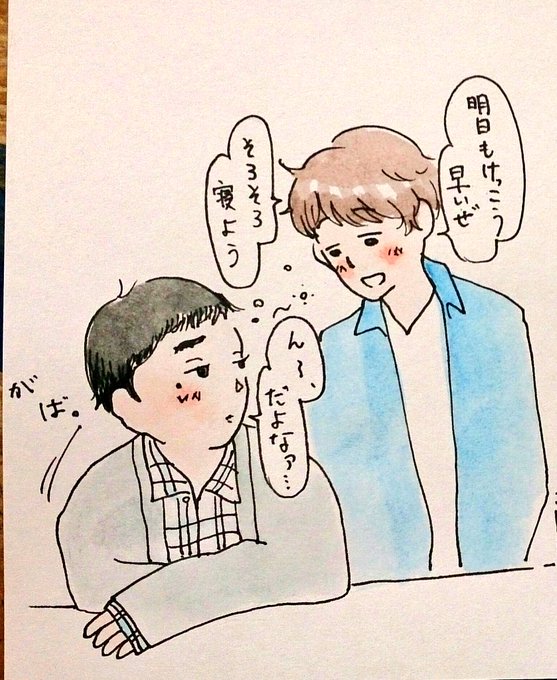 明日もけっこう
早いぜ
そろそろ
寝よう
がば。
んー、
だよなァ…